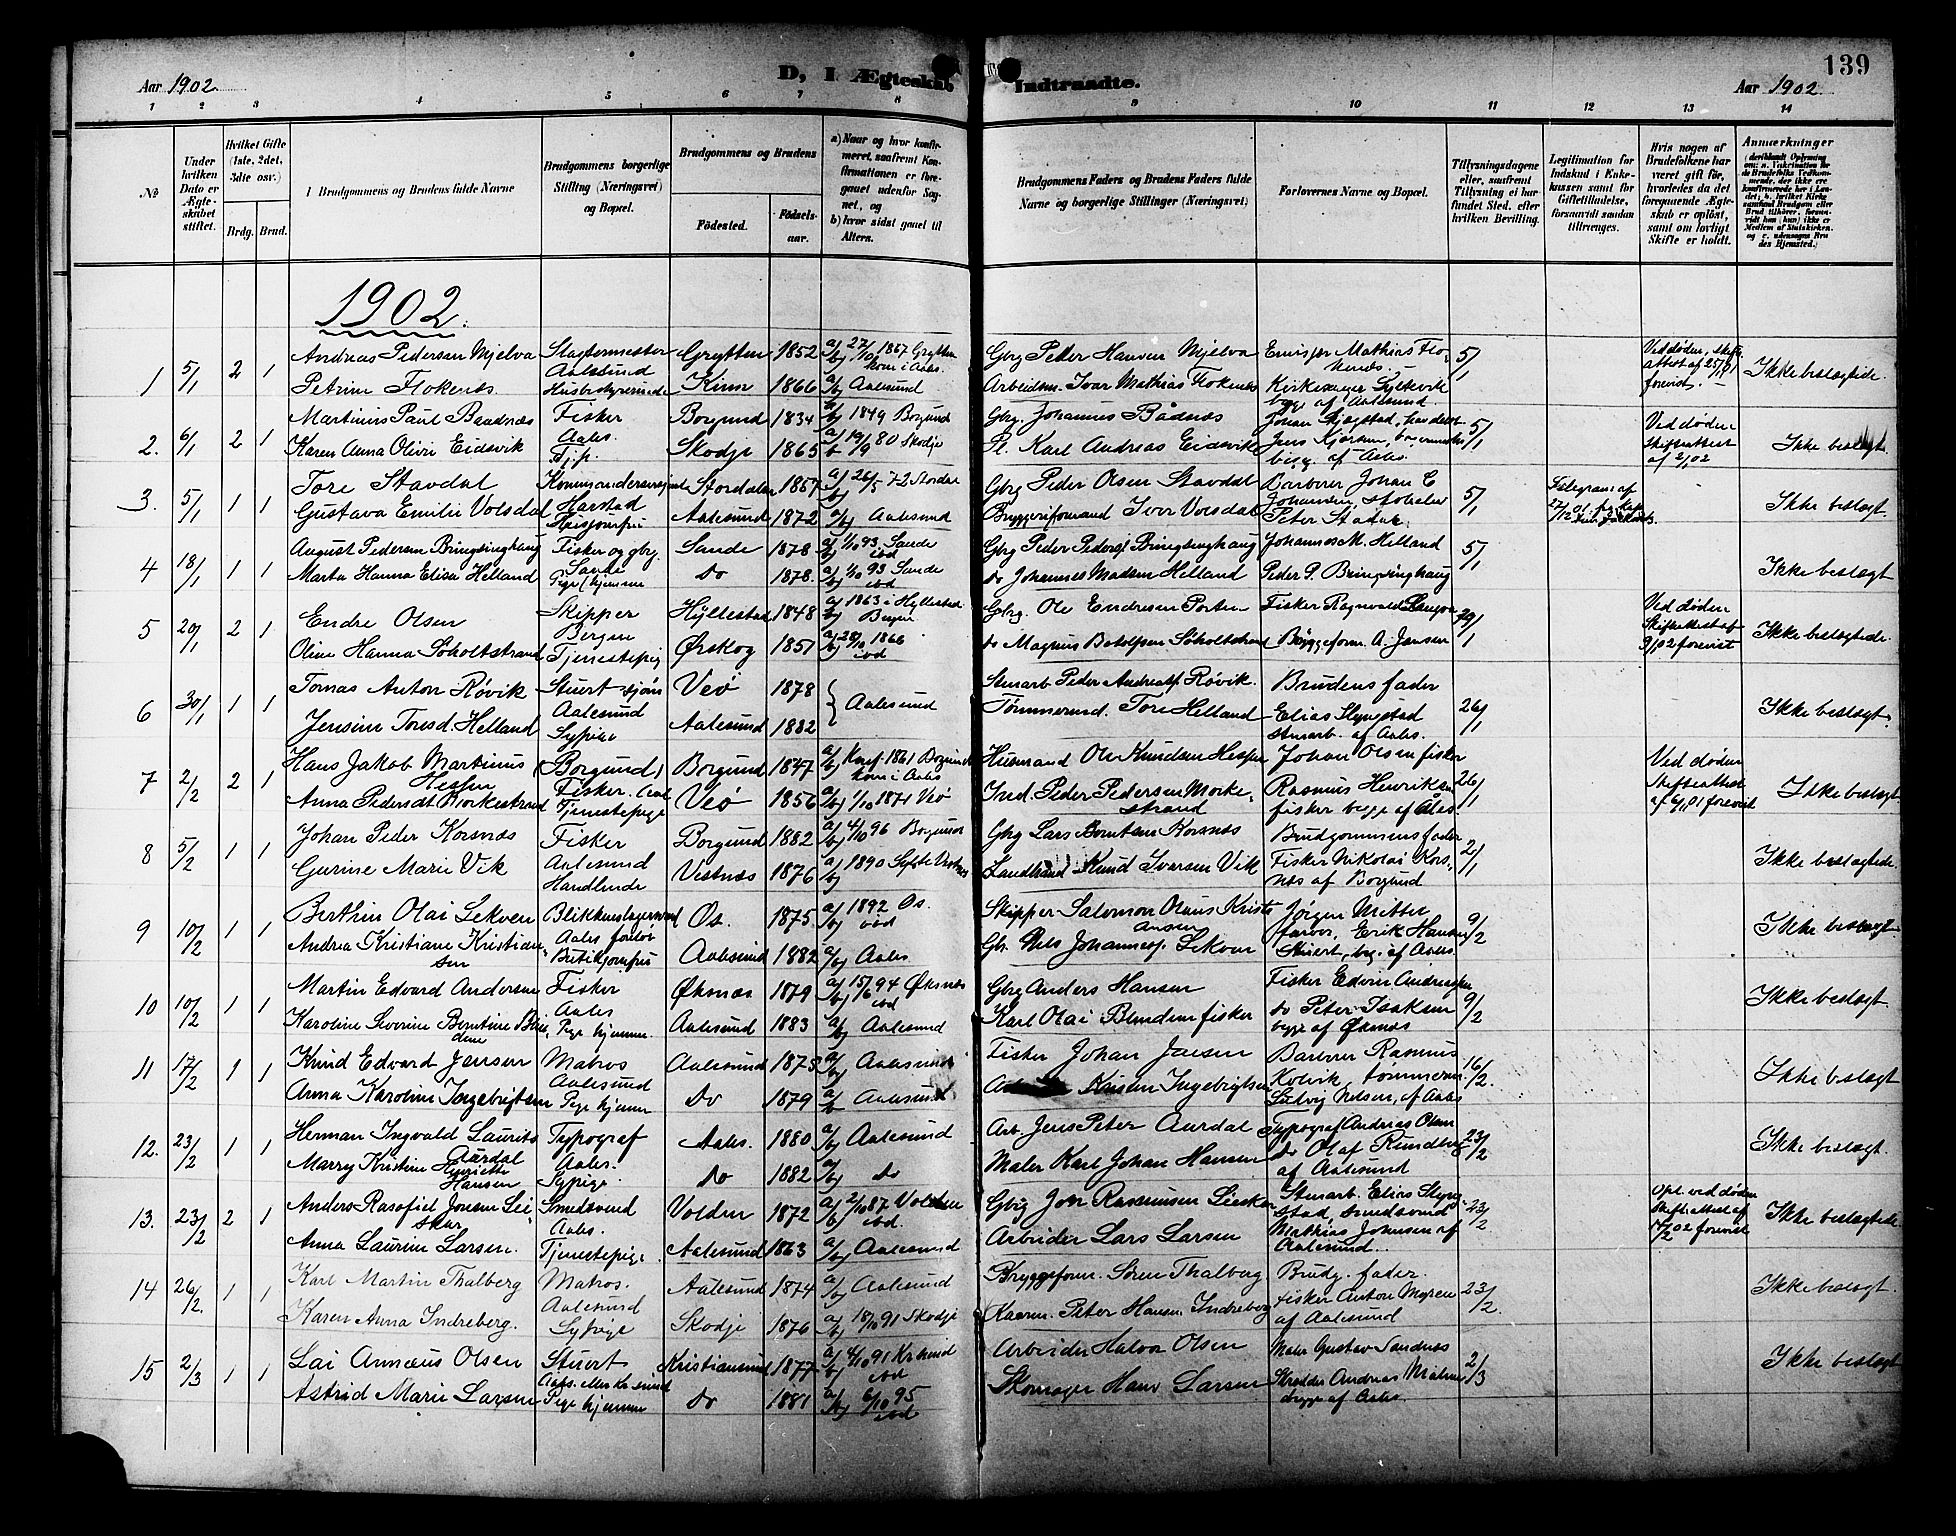 Aar 1902
D, I Ægteskab Indtraadte.
139
Aar 1902
1 2 3 4 5 6 7 8 9 10 11 12 13 14
№
Under hvilken Dato er Ægteskabet stiftet.
Hvilket Gifte (1ste, 2det, 3die osv.)
Brdg. Brud.
Brudgommens og Brudens fulde Navne
Brudgommens borgerlige Stilling (Næringsvei) og Bopæl.
Brudgommens og Brudens
Fødested.
Fødselsaar.
a) Naar og hvor konfirmeret, saafremt Konfirmationen er foregaaet udenfor Sognet, og
b) hvor sidst gaaet til Alters.
Brudgommens Faders og Brudens Faders fulde Navne og borgerlige Stillinger (Næringsvei)
Forlovernes Navne og Bopæl.
Tillysningsdagene eller, saafremt Tillysning ei har fundet Sted, efter hvilken Bevilling.
Legitimation for Indskud i Enkekassen samt for Giftetilladelse, forsaavidt saadan tiltrænges.
Hvis nogen af Brudefolkene har været gift før, hvorledes da det foregaaende Ægteskab er opløst, samt om lovligt Skifte er holdt.
Anmærkninger
1902.
1 5/1 2 1 Andreas Pedersen Mjelva Slagtermester Grytten 1852 a/ 27/10 1867 Grytten Gbrg Petter Hansen Mjelva 5/1 Ikke beslægtede.
Aalesund
Petrine Flokenes Kinn 1866 a/b Aalesund Arbeidsm. Ivar Mathias Flokenes
begge af Aalesund
2. 6/1 2 1 Martinus Paul Baadnæs Fisker Borgund 1834 a/ 1849 Borgund Gbrg. Johannes Bådnæs 5/1 Ved døden Skifteattest af 2/1 02 Ikke beslægt.
Karen Anna Olivi Eidsvik Aales. Skodje 1865 a/ 19/9 80 Skodje Pl. Karl Andreas Eidsvik
3. 5/1 1 1 Tore Stavdal Stordalen 1867 a/ 26/5 72 Stordal Gbrg Peder Olsen Stavdal Barberer Johan E 5/1 Telegram af 27/12 01 Ikke beslægt.
Gustava Emilie Volsdal Harstad Aalesund 1872 a/b Aalesund Bryggeriformand Iver Volsdal
4 18/1 1 1 August Pedersen Bringsinghaug Fisker og gbrg. Sande 1878 a/ 1/10 93 Sande Gbrg Peder Peders. Bringsinghaug Johannes M. Helland 5/1 Ikke beslægt
Marta Hanna Elisa Helland Sande Pige hjemme Do 1878. a/ 1/10 93 Sande do Johannes Madsen Helland Peder P. Bringsinghaug
5 20/1 2 1 Endre Olsen Skipper Hyllestad 1848 a/ 1863 i Hyllestad Gbrg. Ole Endresen Porten Fisker Ragnvald 19/1 Ved døden Skifteattest af 9/1 02 forevist Ikke beslægtede.
Oline Hanna Søholtstrand Bergen Tjenestepig Ørskog 1851 a/ 28/10 1866 do Magnus Botolfsen Søholtstrand Bryggeform. A. Jensen
6 30/1 1 1 Tomas Anton Røvik Stuert Veø 1878 Aalesund Stuarb. Peder Andreas. Røvik. Brudens fader 26/1 Ikke beslægt.
Jensine Toresd. Helland Aalesund Sypige Aalesund 1882 Tømmermd. Tore Helland Elias Slyngstad
stuarb. af Aales.
7 2/2 2 1 Hans Jakob Martinus Hessen (Borgund) Borgund 1847 a/ Konf. 1861 Borgund Husmand Ole Knudsen Hessen Johan Olsen fisker 26/1 Ved døden Skifteattest af 6/1 01 forevist Ikke beslægt
Anna Pedersdt Borkestrand Fisker. Tjenestepige Veø 1856 a/ 1/10 1871 Veø Ind. Peder Pedersen Morkestrand Rasmus Henriksen
fisker begge af Aales.
8 5/2 1 1 Johan Peder Korsnæs Fisker Borgund 1882 a/ 4/10 96 Borgund Gbrg Lars Berntsen Korsnæs Brudgommens fader 2/1 Ikke beslægtede.
Gurine Marie Vik Aalesund Handlende Vestnæs 1876 a/ 1890 Sylte Vestnæs Knud Iversen Vik Fisker Nikolai Korsnæs af Borgund
9 10/2 1 1 Berthin Olai Lekven Blikkenslagersvend Os. 1875 a/ 1892 Os. Skipper Salomon Olaus Kristiansen Jørgen Mittet 9/2 Ikke beslægt.
Andrea Kristiane Kristiansen Aales Butikjomfru Aalesund 1882 a/b Aales Gbr. Nils Johannes. Lekven farver, Erik Hansen
Stuert, beg. af Aales
10 10/2 1 1 Martin Edvard Andersen Fisker Øksnæs 1879 a/ 15/6 94 Øksnæs Gbrg Anders Hansen Fisker Edvin Andreasen 9/2 Ikke beslægt.
Karoline Severine Berntine Aales Pige hjemme. Aalesund 1883 a/b Aalesund Karl Olai Blindem fisker do Peter Isaksen
begge af Øksnæs
11 17/2 1 1 Knud Edvard Jensen Matros Aalesund 1873 a/b Aalesund Fisker Johan Jensen Barberer Rasmus 16/2. Ikke beslægt
Anna Karoline Ingebrigtsen Aalesund Pige hjemme Do 1879 a/b Aalesund Kristen Ingebrigtsen Kolvik, tømmerm.
Ludvig Nilsen, af Aales
12. 23/2 1 1 Herman Ingvald Laurits Aurdal Typograf Aales. 1880 a/b Aalesund Arb. Jens Peter Aurdal Typograf Andreas Olsen 23/2 Ikke beslægt.
Marry Kristine Henriette Hansen Aales. Sypige. Do 1882 a/b Do Maler Karl Johan Hansen do Olaf Rundberg
af Aalesund
13. 23/2 2 1 Anders Rasofiel Jonsen Leiskar Smedsvend Volden 1872 a/ 2/10 87 Volden Gbrg Jon Rasmussen Leiskar Stuarb. Elias Slyngstad, smedsvend 23/2 Opl. ved døden Skifteattest af 17/2 02 forevist Ikke beslægtede
Anna Laurine Larsen. Aales. Tjenestepige. Aalesund 1863 a/b Aalesund Arbeider Lars Larsen Mathias Johnsen af Aalesund.
14 26/2. 1 1 Karl Martin Thalberg Matros. Aalesund 1874 a/b Aalesund Bryggeform. Søren Thalberg Brudg. fader. 23/2. Ikke beslægt.
Karen Anna Indreberg. Aalesund Sypige Skodje 1876 a/ 18/10 91 Skodje Peter Hansen Indreberg fisker Anton Myren
af Aalesund
15 2/3 1 1 Lai Annæus Olsen Stuert Kristiansund 1877 a/ 4/10 91 Kr.sund Arbeider Halvor Olsen Maler Gustav Sandnæs 2/3 Ikke beslægt
Astrid Marie Larsen Pige hjemme Do 1881 a/ 6/10 95 Skomager Hans Larsen Skredder Andreas
begge af Aales.